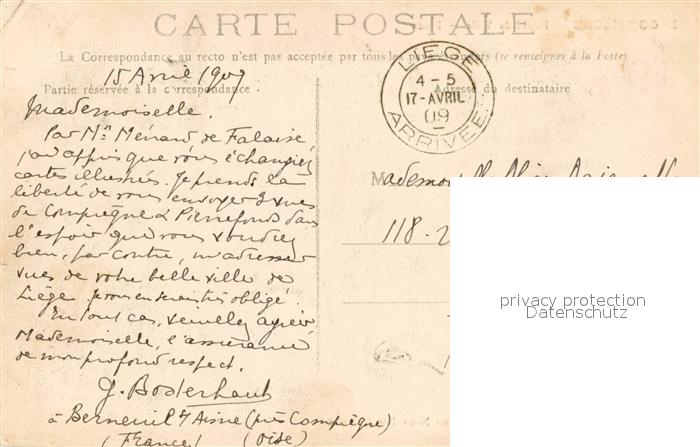 CARTE POSTALE
La Correspondance au recto n'est pas acceptée par tous les pays (se renseigner à la Poste)
Partie réservée à la correspondance
Adresse du destinataire
LIEGE
4-5
17-AVRIL
09
ARRIVÉE
15 Avril 1909
Mademoiselle.
Par Mr Ménard de Falaise,
j'ai appris que vous échangiez
cartes illustrées. Je prends la
liberté de vous envoyer 2 vues
de Compiègne & Pierrefonds dans
l'espoir que vous voudrez
bien, par contre, m'adresser
vues de votre belle ville de
Liège. Je vous en serai très obligé.
En tout cas, veuillez agréer
Mademoiselle, l'assurance
de mon profond respect.
à Berneuil s/ Aisne (près Compiègne)
(France) (Oise)
118
privacy protection
Datenschutz